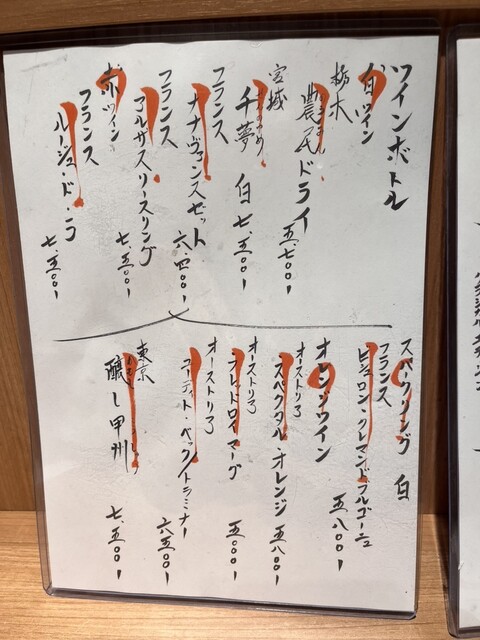 ワインボトル
白ワイン
栃木
農民ドライ
五、七〇〇
宮城
千夢 白 七、五〇〇
フランス
ナナヴァンスゼット
六、四〇〇
フランス
アルザスリースリング
七、五〇〇
赤ワイン
フランス
ルージュ・ド・ラ
七、五〇〇
スパークリング 白
フランス
クレマンドブルゴーニュ
五、八〇〇
オレンジワイン
オーストリア
スペクタクル・オレンジ
五、八〇〇
オーストリア
五、〇〇〇
オーストリア
トラミナー
六、五〇〇
東京
醸し甲州
七、五〇〇